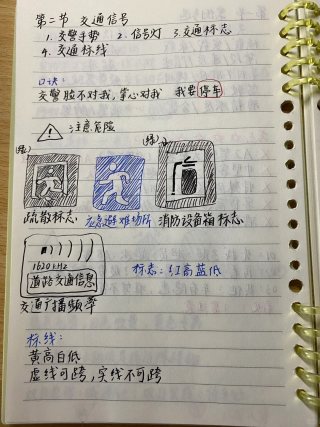 第二节 交通信号
1. 交警手势 2. 信号灯 3. 交通标志
4. 交通标线
口诀:
交警脸不对我,掌心对我 我要停车
注意危险
(绿) (绿)
疏散标志 应急避难场所 消防设备箱标志
1620kHz
道路交通信息
标志:红高蓝低
交通广播频率
标线:
黄高白低
虚线可跨,实线不可跨